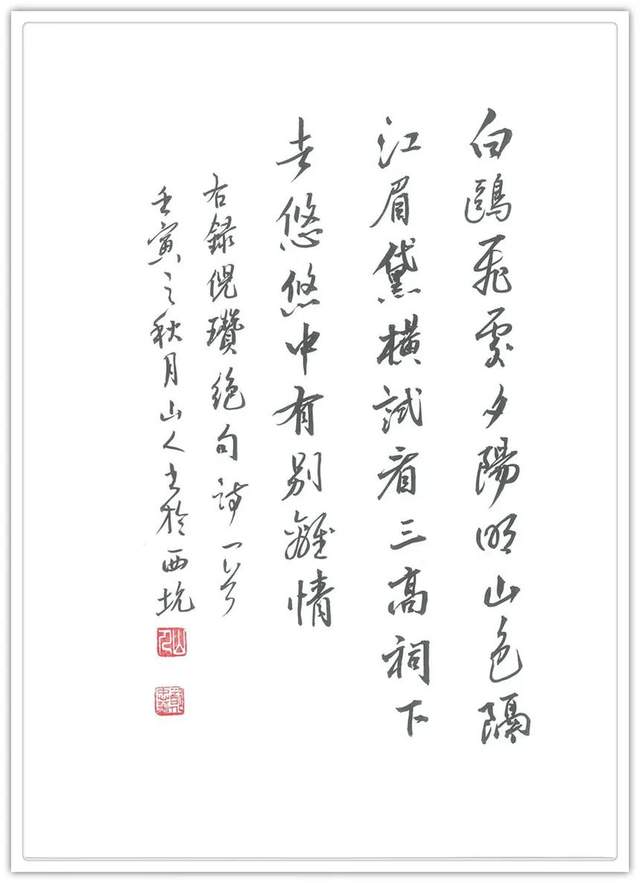 白鷗飛處夕陽明山色隔
江眉黛橫試看三高祠下
水悠悠中有別離情
右錄倪瓚絕句詩一首
壬寅之秋月山人書於西坑
山人